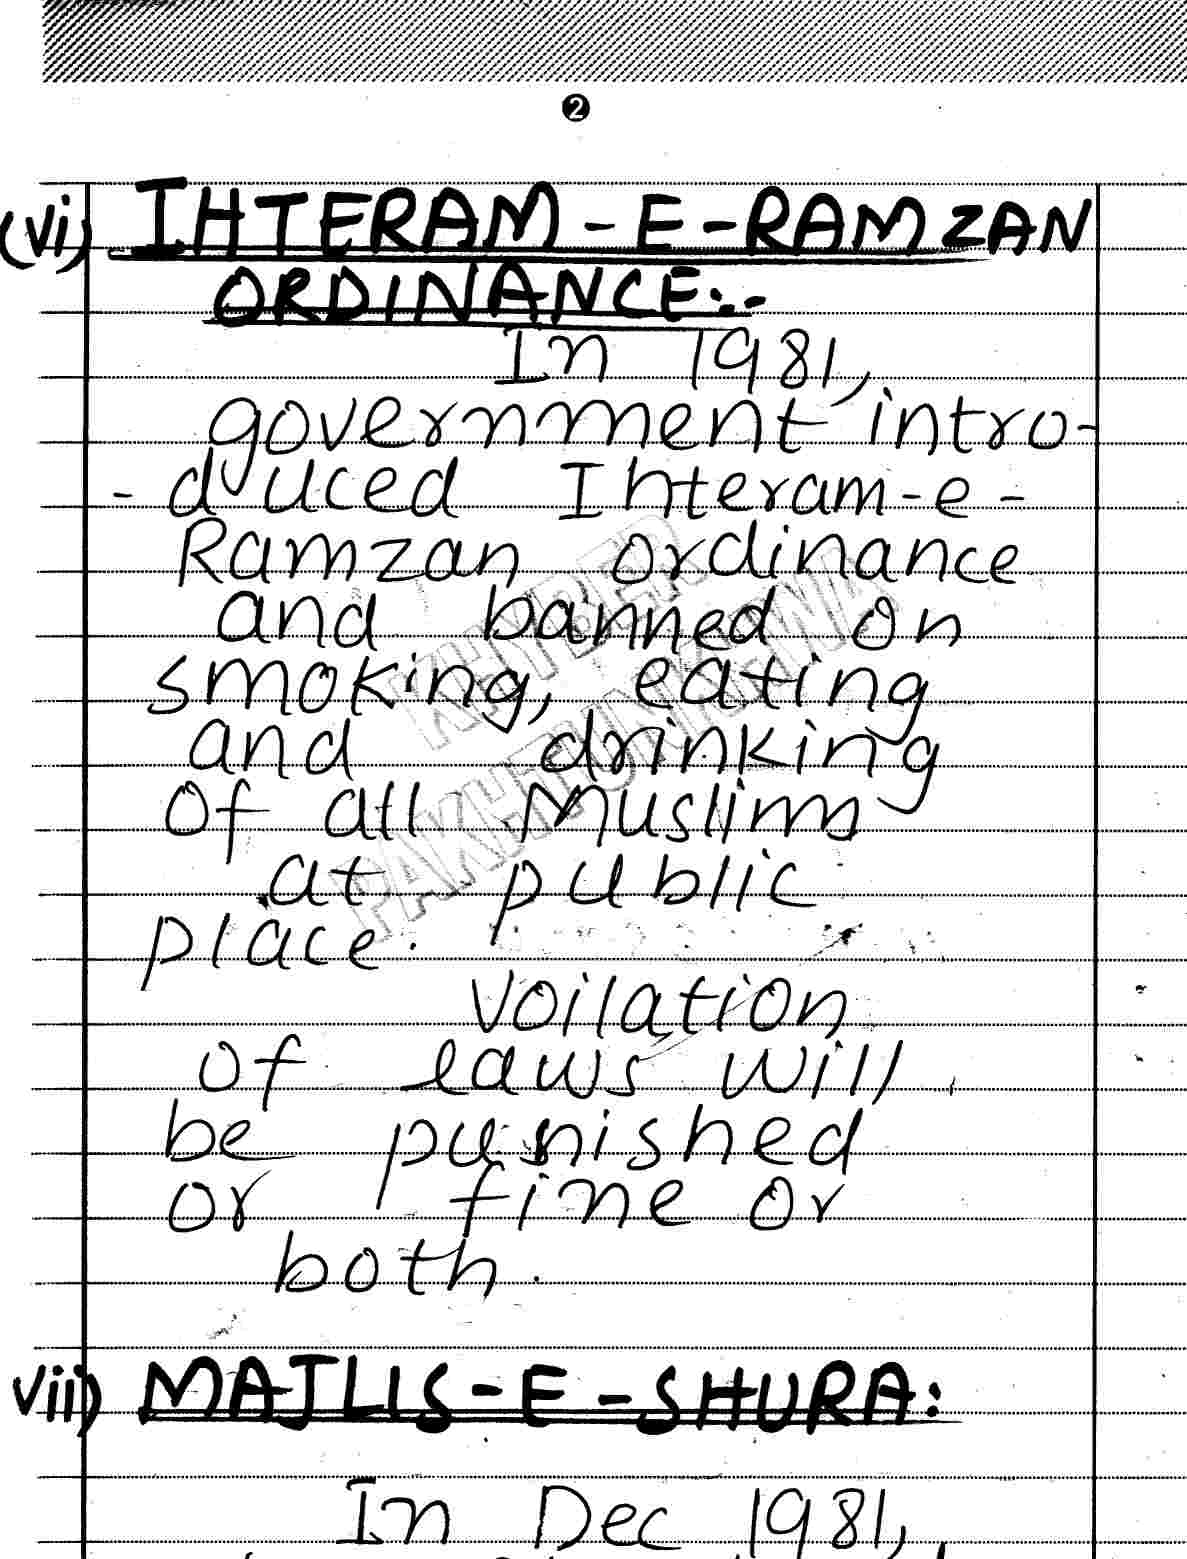 2
(vi) IHTERAM-E-RAMZAN
ORDINANCE:-
In 1981,
government intro-
-duced Ihteram-e-
Ramzan ordinance
and banned on
smoking, eating
and drinking
of all Muslims
at public
place.
Voilation
of laws will
be punished
or fine or
both.
vii) MAJLIS-E-SHURA:
In Dec 1981,
KHYBER
PAKHTUNKHWA